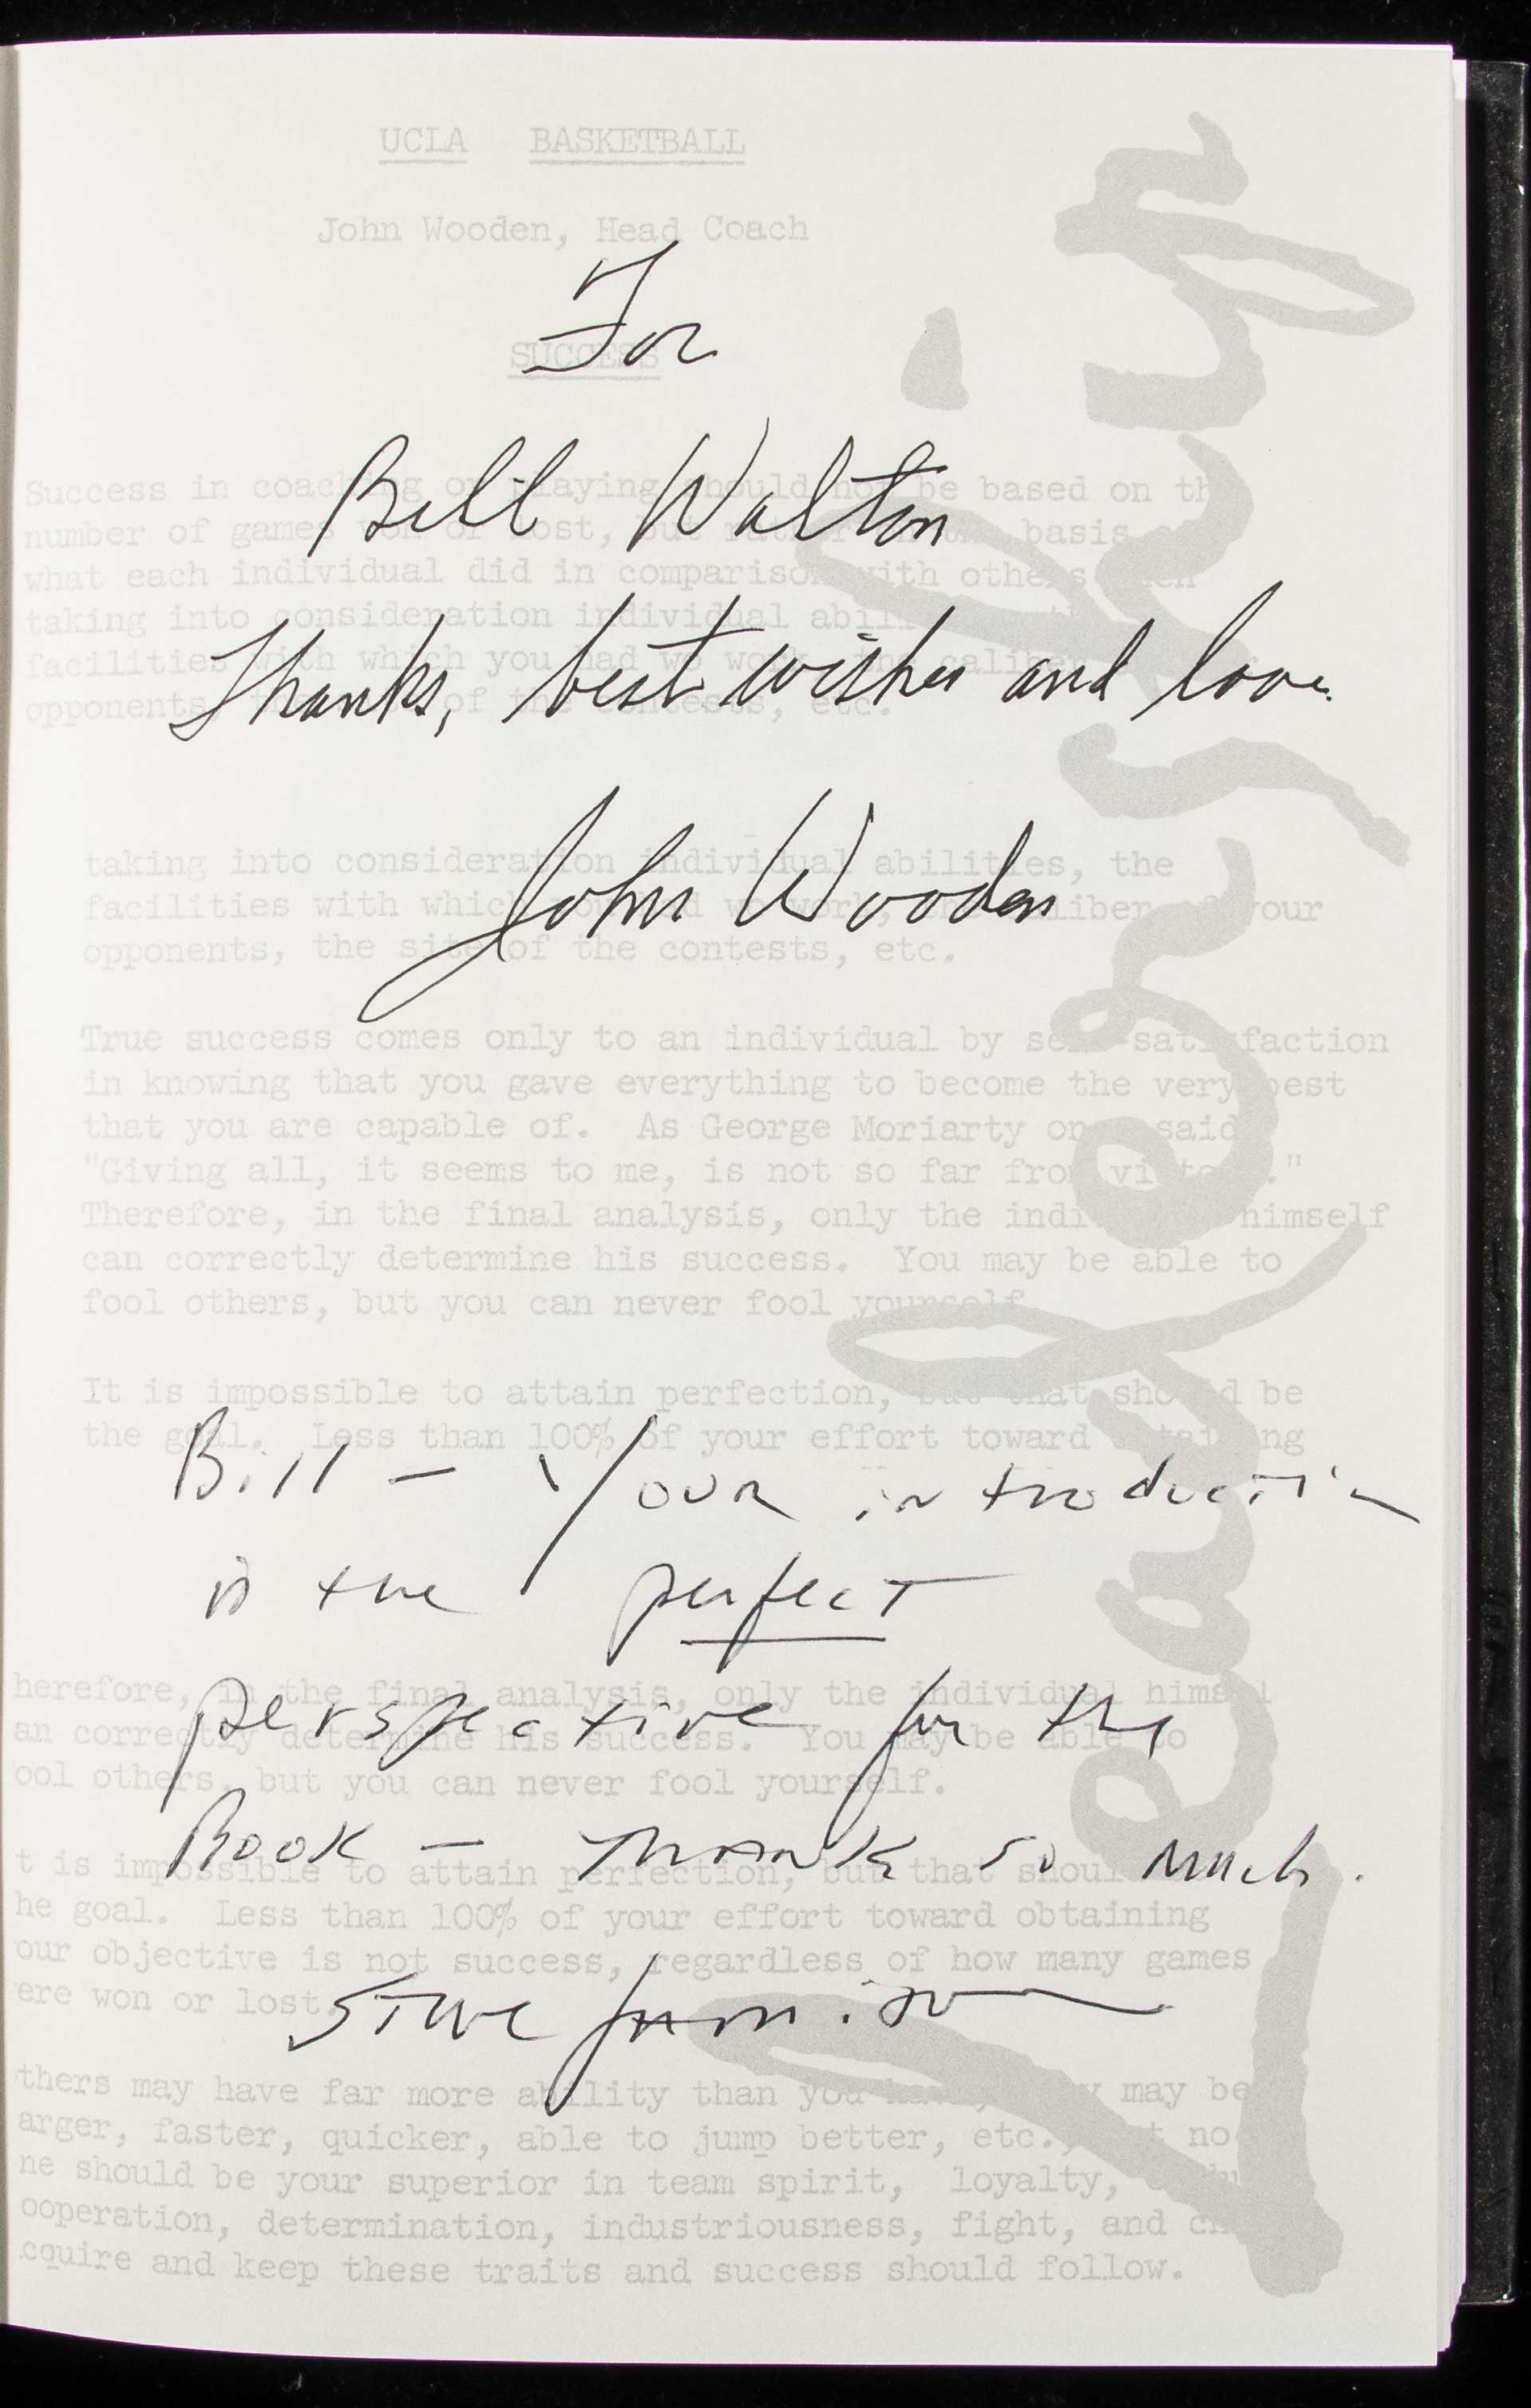 UCLA BASKETBALL
John Wooden, Head Coach
For
SUCCESS
Bill Walton
Success in coaching or playing should not be based on the
number of games won or lost, but rather on the basis
what each individual did in comparison with others when
taking into consideration individual abilities, the
facilities with which you had to work, the caliber
opponents, the site of the contests, etc.
Thanks, best wishes and love.
John Wooden
taking into consideration individual abilities, the
facilities with which you had to work, the caliber of your
opponents, the site of the contests, etc.
True success comes only to an individual by self-satisfaction
in knowing that you gave everything to become the very best
that you are capable of. As George Moriarty once said
"Giving all, it seems to me, is not so far from victory."
Therefore, in the final analysis, only the individual himself
can correctly determine his success. You may be able to
fool others, but you can never fool yourself
It is impossible to attain perfection, but that should be
the goal. Less than 100% of your effort toward obtaining
Bill - Your introduction
is the perfect
perspective for the
Book - Thanks so much.
Steve Jamison
herefore, in the final analysis, only the individual himsel
an correctly determine his success. You may be able to
ool others, but you can never fool yourself.
t is impossible to attain perfection, but that shoul
he goal. Less than 100% of your effort toward obtaining
our objective is not success, regardless of how many games
ere won or lost.
thers may have far more ability than you have, they may be
arger, faster, quicker, able to jump better, etc., but no
ne should be your superior in team spirit, loyalty,
ooperation, determination, industriousness, fight, and
cquire and keep these traits and success should follow.
Leadership